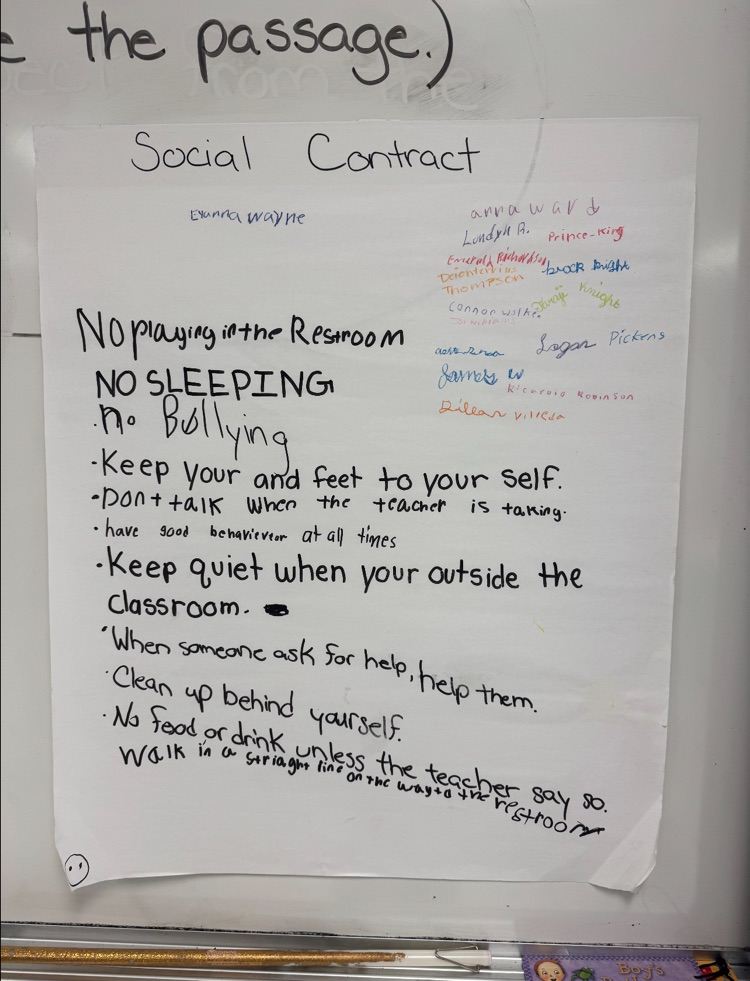 the passage.)
Social Contract
Eyanna wayne
anna ward
Londyn R. Prince-King
Emerald Richardson
brock knight
Thompson
Knight
Connor
Logan Pickens
James W
Robinson
Villeda
No playing in the Restroom
NO SLEEPING
.no Bullying
·Keep your and feet to your self.
·Don't talk when the teacher is taking.
·have good behavievor at all times
·Keep quiet when your outside the
classroom.
·When someone ask for help, help them.
·Clean up behind yourself.
·No food or drink unless the teacher say so.
Walk in a striaght line on the way to the restroom
Boy's